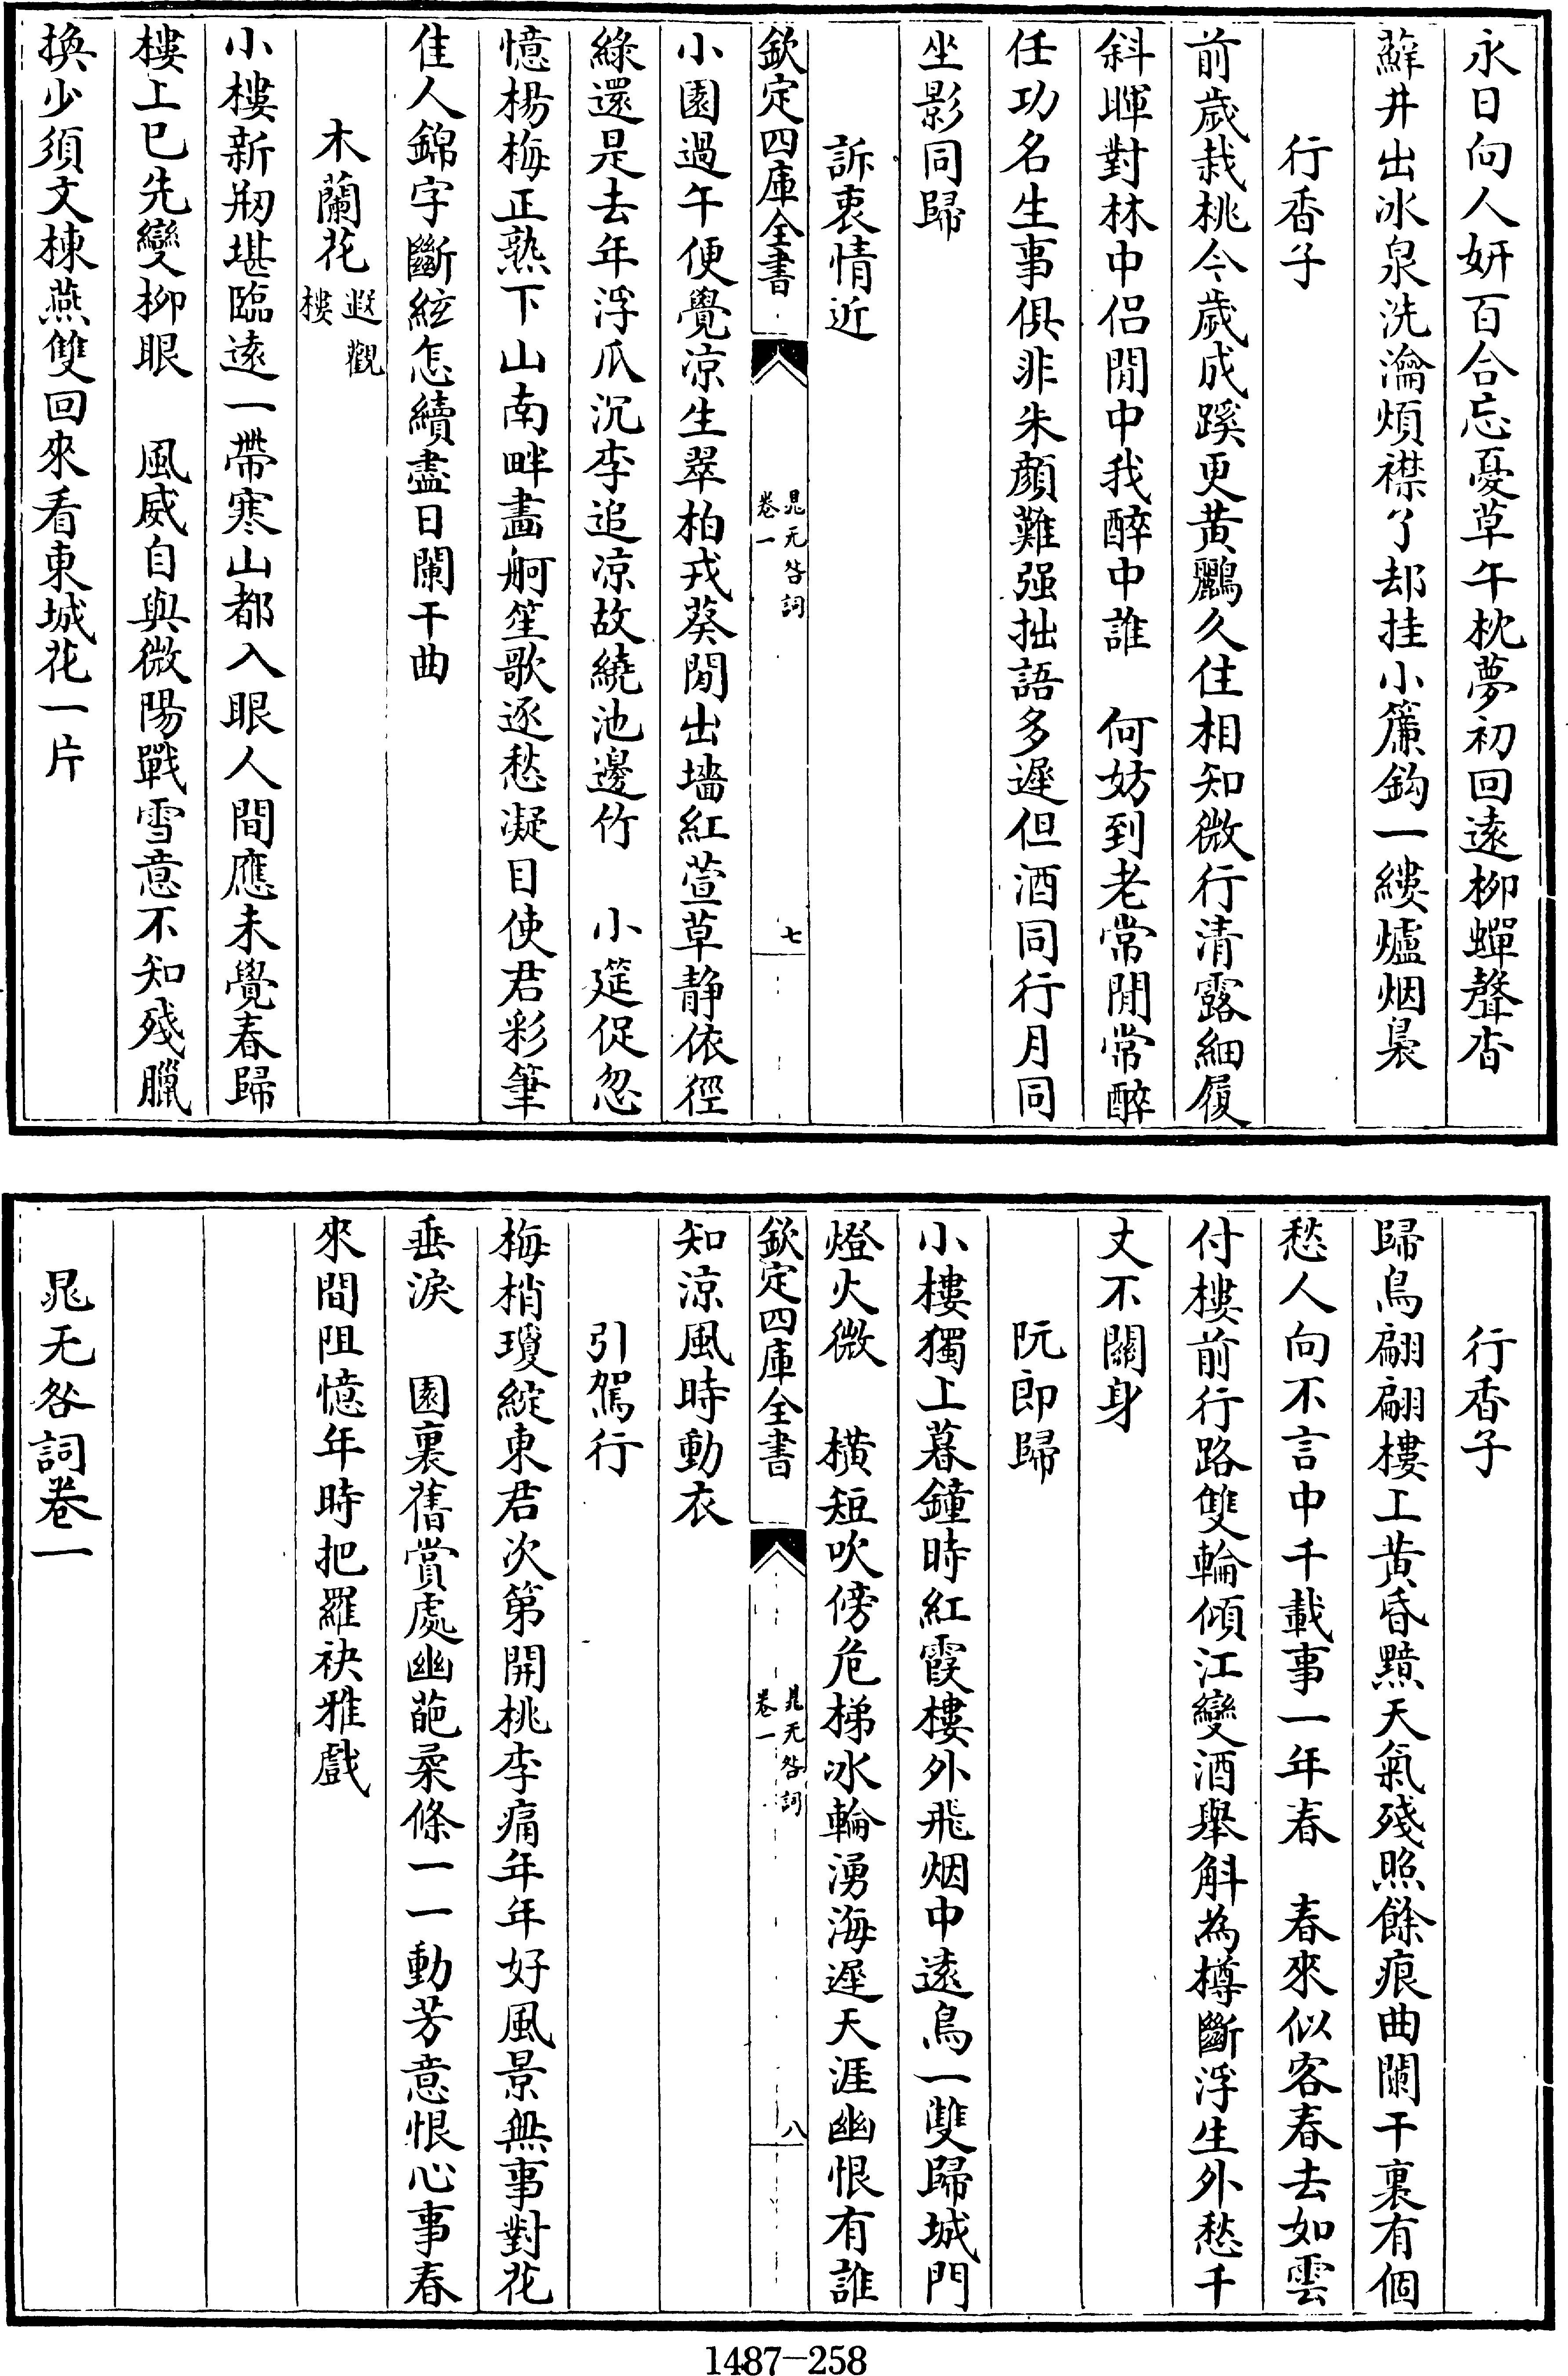 永日向人妍百合忘憂草午枕夢初回逺柳蟬聲杳
蘚井出冰泉洗瀹煩襟了却挂小簾鈎一縷爐烟裊
行香子
前歲栽桃今歲成蹊更黄鸝久住相知微行清露細履
斜暉對林中侣閒中我醉中誰　何妨到老常閒常醉
任功名生事俱非朱顔難强拙語多遲但酒同行月同
坐影同歸
訴衷情近
欽定四庫全書
晁无咎詞
卷一
七
小園過午便覺凉生翠柏戎葵閒出墻紅萱草静依徑
綠還是去年浮瓜沉李追凉故繞池邊竹　小筵促忽
憶楊梅正熟下山南畔畵舸笙歌逐愁凝目使君彩筆
佳人錦字斷絃怎續盡日闌干曲
木蘭花
遐觀
樓
小樓新剏堪臨逺一帶寒山都入眼人間應未覺春歸
樓上已先變柳眼　風威自與微陽戰雪意不知殘臘
換少須文棟燕雙回來看東城花一片
行香子
歸鳥翩翩樓上黄昏黯天氣殘照餘痕曲闌干裏有個
愁人向不言中千載事一年春　春來似客春去如雲
付樓前行路雙輪傾江變酒舉斛為樽斷浮生外愁千
丈不關身
阮郎歸
小樓獨上暮鐘時紅霞樓外飛烟中逺鳥一雙歸城門
燈火微　横短吹傍危梯冰輪湧海遲天涯幽恨有誰
欽定四庫全書
晁无咎詞
卷一
八
知涼風時動衣
引駕行
梅梢瓊綻東君次第開桃李痛年年好風景無事對花
垂淚　園裏舊賞處幽葩柔條一一動芳意恨心事春
來間阻憶年時把羅袂雅戲
晁无咎詞卷一
1487—258